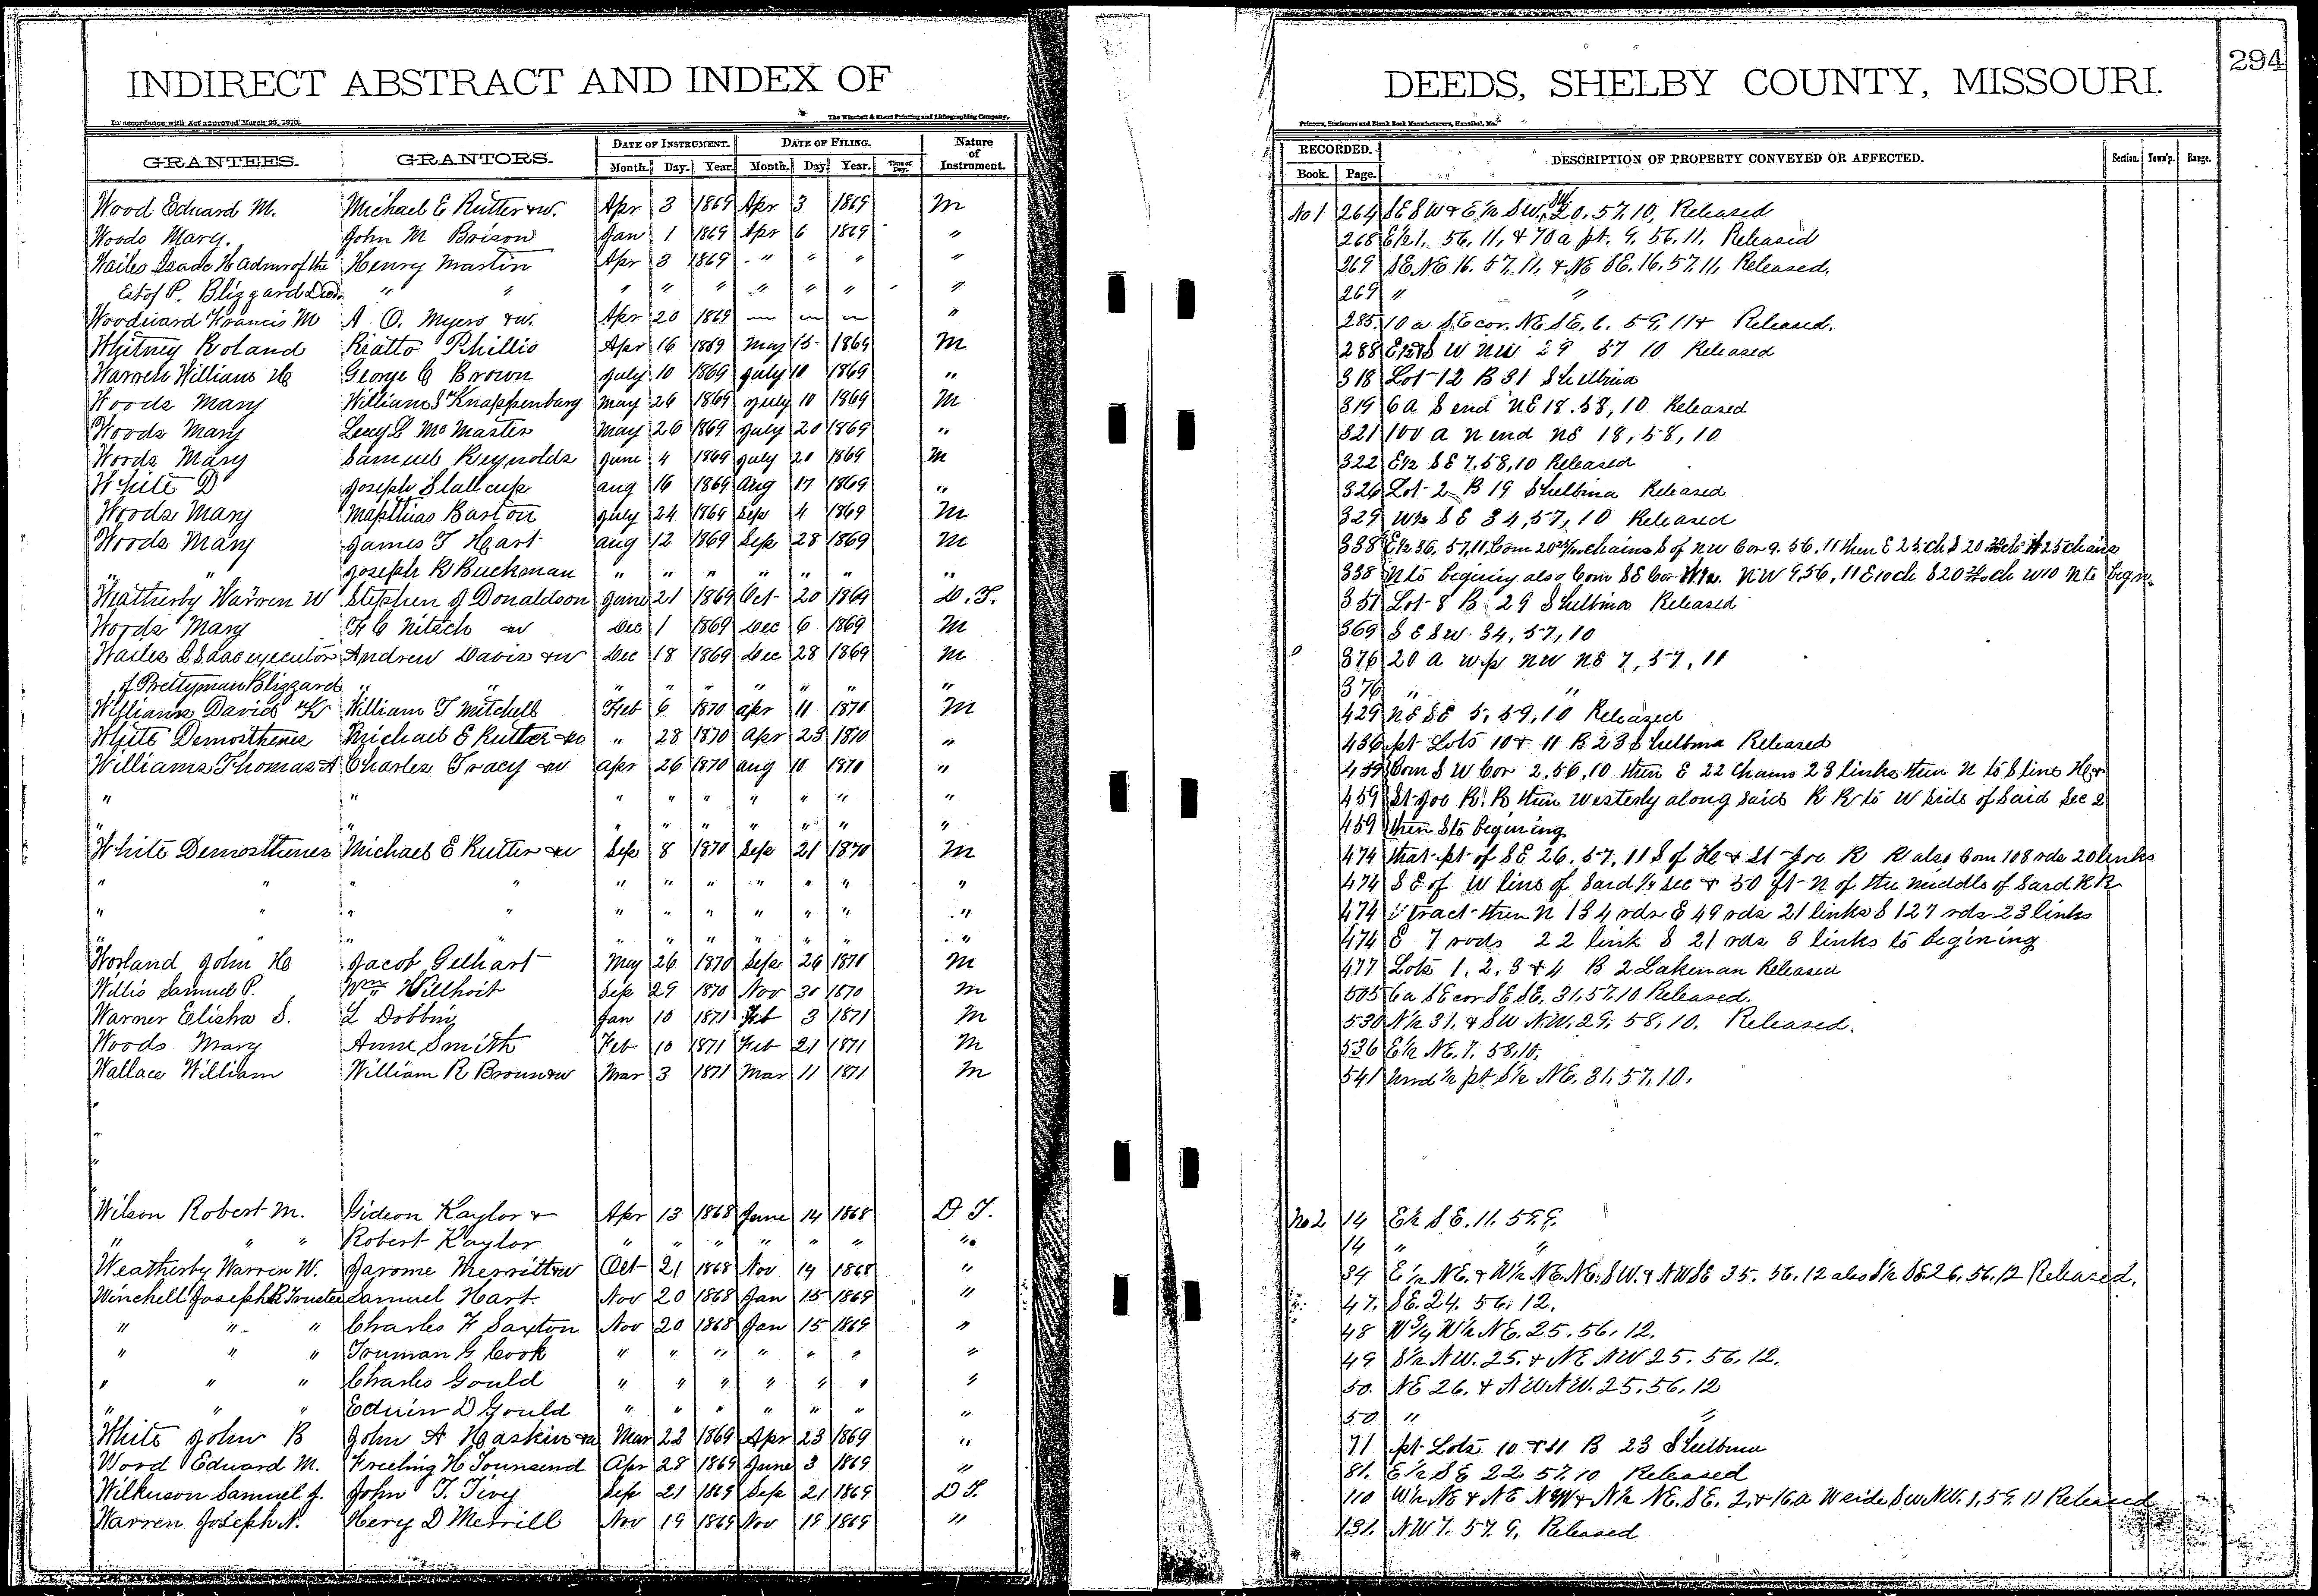 INDIRECT ABSTRACT AND INDEX OF DEEDS, SHELBY COUNTY, MISSOURI. 294
In accordance with Act approved March 25, 1870. The Winchell & Ebert Printing and Lithographing Company, Printers, Stationers and Blank Book Manufacturers, Hannibal, Mo.
GRANTEES. GRANTORS. DATE OF INSTRUMENT. DATE OF FILING. Nature of Instrument. RECORDED. DESCRIPTION OF PROPERTY CONVEYED OR AFFECTED. Section. Town'p. Range.
Month. Day. Year. Month. Day. Year. Time of Day. Book. Page.
Wood Edward M. Michael E Rutter &w. Apr 3 1869 Apr 3 1869 M No 1 264 SE SW & E½ SW SW 20, 57, 10, Released
Woods Mary. John M Brison Jan 1 1869 Apr 6 1869 " 268 E½ 1, 56, 11, & 70 a pt. 9, 56, 11, Released
Wailes Isaac H Admr of the Henry Martin Apr 3 1869 " " " " 269 SE NE 16. 57. 11, & NE SE. 16, 57, 11, Released.
Est of P. Blizzard Decd. " " " " " " " " " 269 " "
Woodward Francis M A. O. Myers &w. Apr 20 1869 — — — " 285. 10 a SE cor. NE SE, 6. 59, 11 & Released.
Whitney Roland Riatto Phillis Apr 16 1869 May 15 1869 M 288 SW NW 29 57 10 Released
Warren William H George C Brown July 10 1869 July 10 1869 " 318 Lot 12 B 31 Shelbina
Woods Mary William S Knappenburg May 26 1869 July 10 1869 M 319 6 a S end NE 18. 58, 10 Released
Woods Mary Lucy L McMaster May 26 1869 July 20 1869 " 321 100 a N end NE 18, 58, 10
Woods Mary Samuel Reynolds June 4 1869 July 20 1869 M 322 E½ SE 7, 58, 10 Released
White D Joseph Stallcup Aug 16 1869 Aug 17 1869 " 326 Lot 2 B 19 Shelbina Released
Woods Mary Matthias Barton July 24 1869 Sep 4 1869 M 329 W½ SE 34, 57, 10 Released
Woods Mary James T Hart Aug 12 1869 Sep 28 1869 M 338 E½ 36, 57, 11, Com chains S of NW Cor 9. 56. 11 then E 25 ch S 20 ch 25 chains
" " Joseph R Buckman " " " " " " " 338 N to begining also Com SE Cor NW 9, 56, 11 E 10 ch S 20 ch W 10 N to begn.
Weatherby Warren W Stephen J Donaldson June 21 1869 Oct 20 1869 D. T. 351 Lot 8 B 29 Shelbina Released
Woods Mary F C Nitsch &w Dec 1 1869 Dec 6 1869 M 369 SE SW 34, 57, 10
Wailes Isaac executor Andrew Davis &w Dec 18 1869 Dec 28 1869 M 376 20 a W pt NW NE 7, 57, 11
of Prettyman Blizzard " " " " " " " " " 376 " "
Williams David K William T Mitchell Feb 6 1870 Apr 11 1870 M 429 NE SE 5, 59, 10 Released
White Demosthenes Michael E Rutter &w " 28 1870 Apr 23 1870 " 436 pt Lots 10 & 11 B 23 Shelbina Released
Williams Thomas A Charles Tracy &w Apr 26 1870 Aug 10 1870 " 459 Com SW Cor 2. 56, 10 then E 22 Chains 23 links then N to S line H &
" " " " " " " " " 459 St Joe R. R then Westerly along said R R to W side of Said Sec 2
" " " " " " " " " 459 then S to begining
White Demosthenes Michael E Rutter &w Sep 8 1870 Sep 21 1870 M 474 that pt of SE 26. 57, 11 S of H & St Joe R R also Com 108 rds 20 links
" " " " " " " " " " " 474 SE of W line of Said ¼ Sec & 50 ft N of the middle of Said R R
" " " " " " " " " " " 474 tract then N 134 rds E 49 rds 21 links S 127 rds 23 links
" " " " " " " " " " 474 E 7 rods 22 link S 21 rds 3 links to begining
Worland John H Jacob Gelhart May 26 1870 Sep 26 1870 M 477 Lots 1, 2, 3 & 4 B 2 Lakenan Released
Willis Samuel P. Wm Willhoit Sep 29 1870 Nov 30 1870 M 505 6 a SE cor SE SE, 31, 57, 10 Released.
Warner Elisha S. L Dobbin Jan 10 1871 Feb 3 1871 M 530 N½ 31, & SW NW, 29, 58, 10, Released.
Woods Mary Anne Smith Feb 10 1871 Feb 21 1871 M 536 E½ NE. 7. 58, 10.
Wallace William William R Brown &w Mar 3 1871 Mar 11 1871 M 541 Und ½ pt S½ NE, 31, 57, 10.
Wilson Robert M. Gideon Kaylor & Apr 13 1868 June 14 1868 D T. No 2 14 E½ SE. 11. 59. 9.
" " " Robert Kaylor " " " " " " " 14 " "
Weatherby Warren W. Jarome Merritt &w Oct 21 1868 Nov 14 1868 " 34 E½ NE. & W½ NE. NE SW. & NW SE 35. 56. 12 also S½ SE 26, 56, 12 Released.
Winchell Joseph R Trustee Samuel Hart. Nov 20 1868 Jan 15 1869 " 47. SE. 24. 56. 12.
" " " Charles F Saxton Nov 20 1868 Jan 15 1869 " 48 W¾ W½ NE. 25. 56. 12.
" " " Truman G Cook " " " " " " " 49 S½ NW. 25. & NE NW 25. 56. 12.
" " " Charles Gould " " " " " " " 50. NE 26. & NW NW. 25. 56. 12
" " " Edwin D Gould " " " " " " " 50 " "
White John B John A Haskins &w Mar 22 1869 Apr 23 1869 " 71 pt Lots 10 & 11 B 23 Shelbina
Wood Edward M. Freeling H Townsend Apr 28 1869 June 3 1869 " 81. E½ SE 22. 57. 10 Released
Wilkerson Samuel J. John T. Tivy Sep 21 1869 Sep 21 1869 D T. 110 W½ NE & NE NW & N½ NE. SE. 2, & 16 a W side SW NW. 1, 59, 11 Released
Warren Joseph N. Hery D Merrill Nov 19 1869 Nov 19 1869 " 131. NW 7. 57. 9. Released